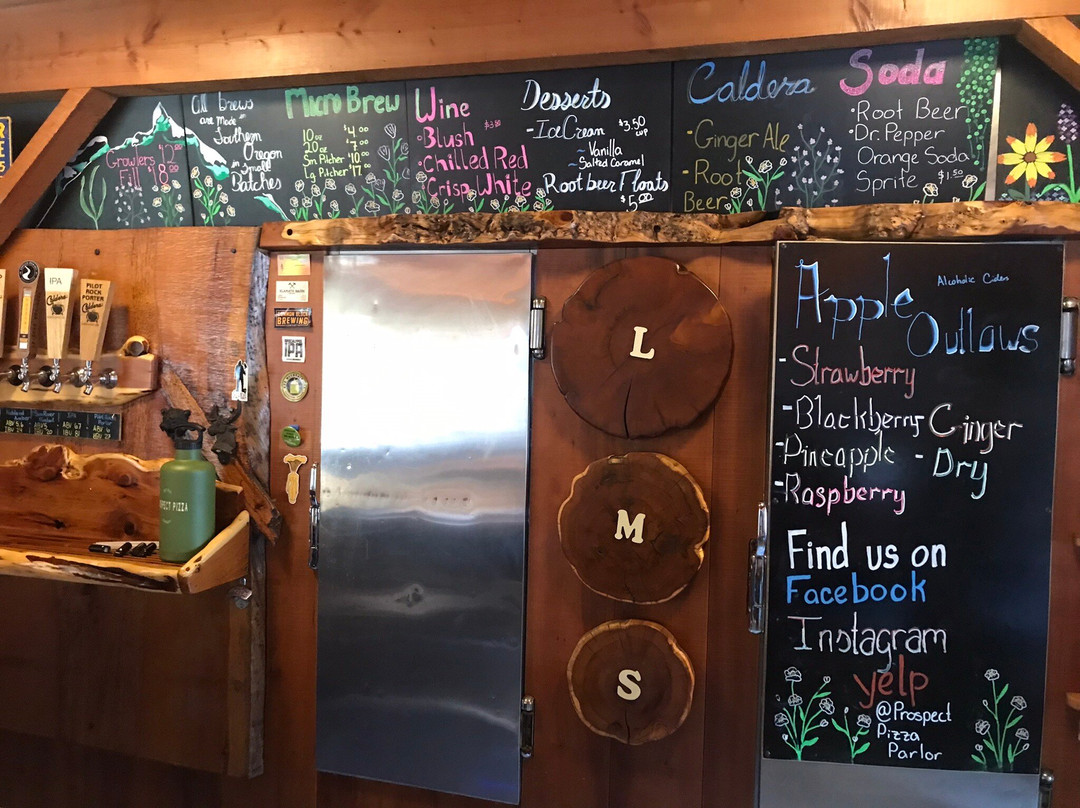 All brews
are made
Southern
Oregon
in small
Batches
Growlers $12.00
Fill $18.00
Micro Brew
10oz $4.00
20oz $7.00
Sm Pitcher $10.00
Lg Pitcher $17.00
Wine
• Blush
• Chilled Red
• Crisp White
Desserts
- Ice Cream $3.50 cup
~ Vanilla
~ Salted Caramel
Root beer Floats
$5.00
Caldera
- Ginger Ale
- Root
Beer
Soda
• Root Beer
• Dr. Pepper
Orange Soda
Sprite $1.50
IPA
Caldera
PILOT
ROCK
PORTER
Caldera
BREWING
IPA
PECT PIZZA
L
M
S
Apple Outlaws
Alcoholic Ciders
- Strawberry
- Blackberry Ginger
- Pineapple - Dry
- Raspberry
Find us on
Facebook
Instagram
yelp
@Prospect
Pizza
Parlor